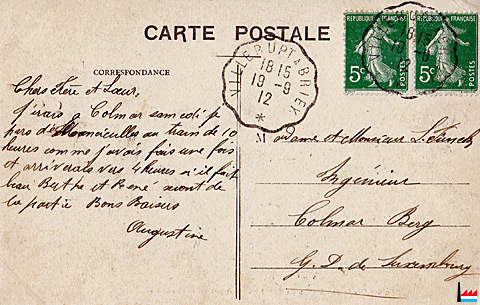 CARTE POSTALE
CORRESPONDANCE
RÉPUBLIQUE FRANÇAISE
5c POSTES
RÉPUBLIQUE FRANÇAISE
5c POSTES
VILLERUPT A BRIEY
18 15
19 - 9
12
*
18 15
19 - 9
12
Chers Frère et Sœur,
J'irais à Colmar samedi je
pars d' au train de 10
heures comme j'avais fais une fois
et arriverais vers 4 heures s'il fait
beau Berthe et René seront de
la partie Bons Baisers
Augustine
Madame et Monsieur
Ingénieur
Colmar Berg
G. D. de Luxembourg